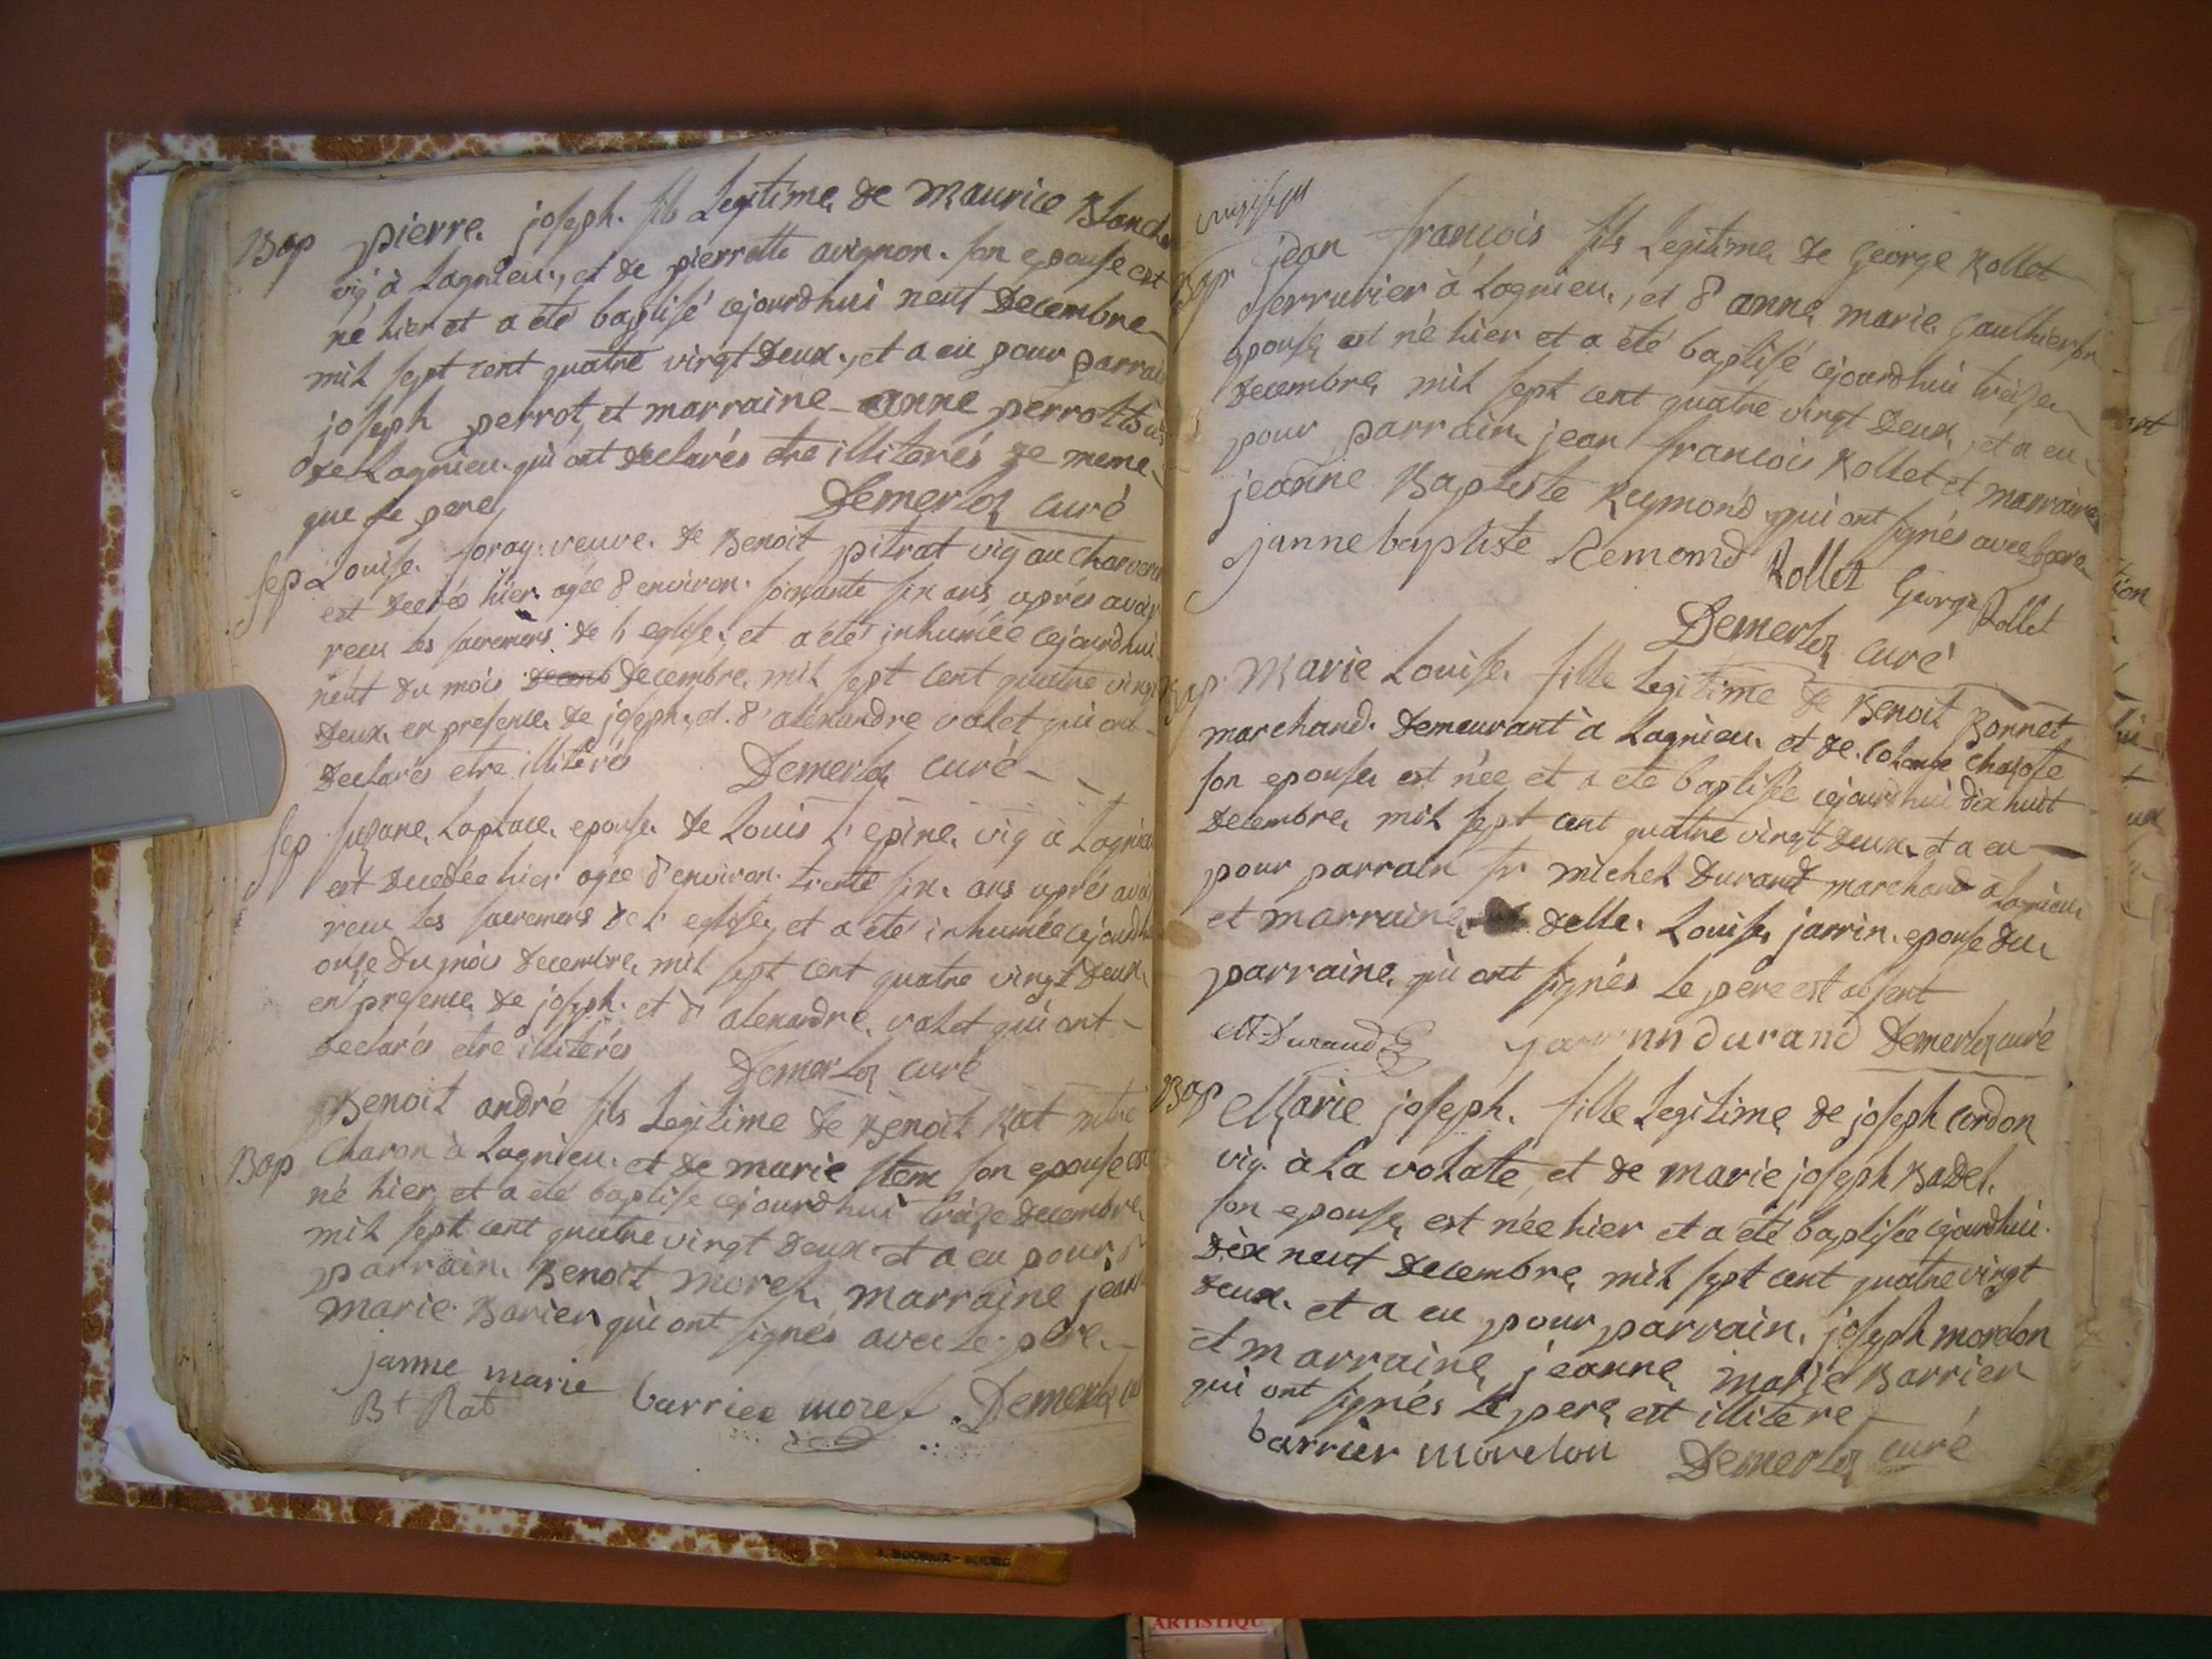 Bap pierre joseph fils Legitime de Maurice Bland
vig à Lagnieu, et de pierrette avignon son epouse est
né hier et a eté baptisé cejourdhui neuf Decembre
mil sept cent quatre vingt Deux, et a eu pour parrain
joseph perrot et marraine anne perrot
de Lagnieu qui ont declarés etre illiterés de meme
que le pere Demerloz curé
sep Louise foray veuve de Benoit pitrat vig au
est decedée hier agée d'environ soixante six ans après avoir
recu les sacremens de l'eglise, et a eté inhumée cejourdhui
neuf du mois decemb Decembre mil sept cent quatre vingt
Deux en presence de joseph et d'alexandre valet qui ont
declarés etre illiterés Demerloz curé
sep suzane Laplace epouse de Louis l'epine vig à Lagnieu
est decedée hier agée d'environ trente six ans après avoir
recu les sacremens de l'eglise, et a eté inhumée cejourdhui
onze du mois Decembre mil sept cent quatre vingt Deux
en presence de joseph et d'alexandre valet qui ont
declarés etre illiterés Demerloz curé
Benoit andré fils Legitime de Benoit Rat
Bap Charon à Lagnieu et de marie son epouse est
né hier et a eté baptisé cejourdhui treize Decembre
mil sept cent quatre vingt Deux et a eu pour
parrain Benoit morel, marraine jeanne
marie Barier qui ont signés avec le père
janne marie barrier morel Demerloz
Bt Rat
Bap jean francois fils Legitime de George Rollet
serrurier à Lagnieu, et d'anne marie Gaulthier son
epouse est né hier et a eté baptisé cejourdhui treize
Decembre mil sept cent quatre vingt Deux, et a eu
pour parrain jean francois Rollet et marraine
jeanne Baptiste Reymond qui ont signés avec le pere
janne baptiste Remond Rollet George Rollet
Demerloz curé
Bap Marie Louise fille Legitime de Benoit Bonnet
marchand Demeurant à Lagnieu et de
son epouse est née et a eté baptisée cejourdhui dix huit
Decembre mil sept cent quatre vingt Deux et a eu
pour parrain sr michel Durand marchand à Lagnieu
et marraine delle Louise jarrin epouse du
parraine qui ont signés Le pere est absent
M Durand durand Demerloz curé
Bap Marie joseph fille Legitime de joseph cordon
vig à La volate et de marie joseph Badel
son epouse est née hier et a eté baptisée cejourdhui
Dix neuf Decembre mil sept cent quatre vingt
Deux et a eu pour parrain joseph
et marraine jeanne marie Barrier
qui ont signés Le pere est illitere
barrier morelon Demerloz curé
ARTISTIQU